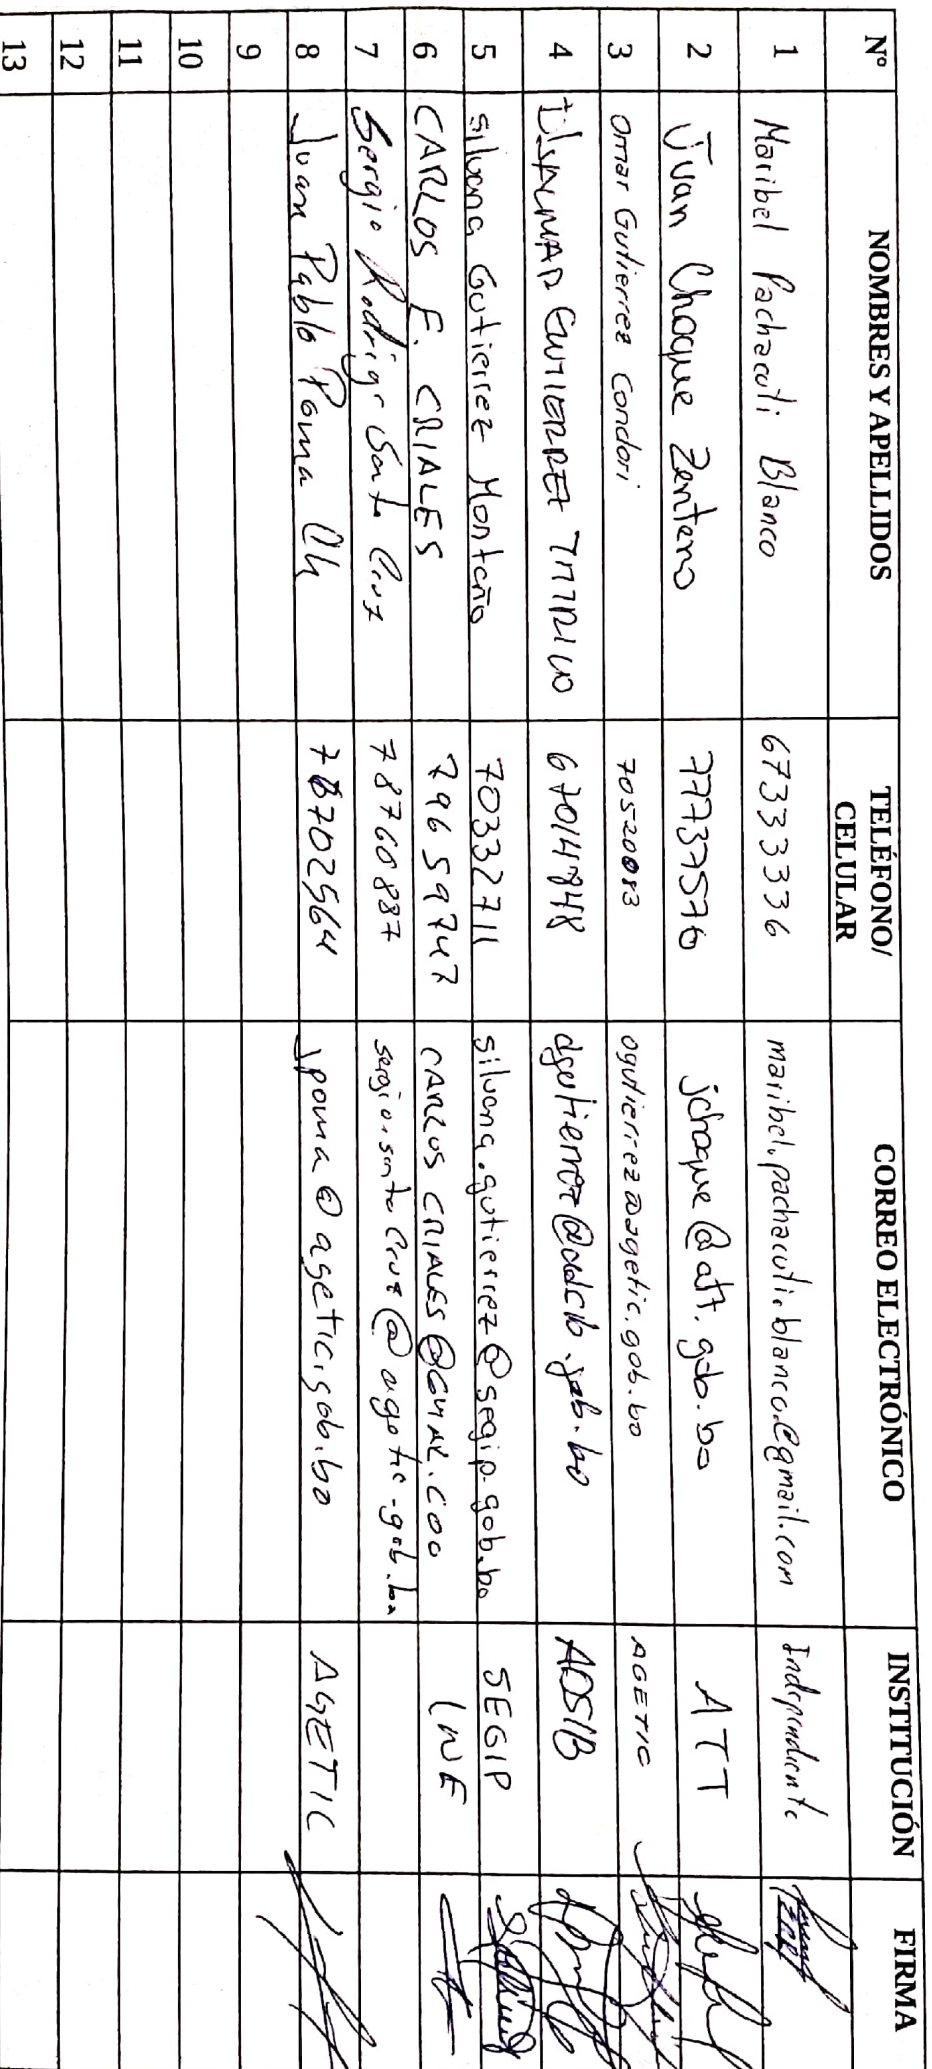 Nº NOMBRES Y APELLIDOS TELÉFONO/ CELULAR CORREO ELECTRÓNICO INSTITUCIÓN FIRMA
1 Maribel Pachacuti Blanco 67333336 maribel.pachacuti.blanco@gmail.com Independiente
2 Juan Choque Zenteno 77737576 jchoque@att.gob.bo ATT
3 Omar Gutierrez Condori 70520083 ogutierrez@agetic.gob.bo AGETIC
4 GUTIERREZ 67014848 ADSIB
5 silvana Gutierrez Montaño 70332711 silvana.gutierrez@segip.gob.bo SEGIP
6 CARLOS F. CRIALES 79659747 INE
7 Sergio Rodrigo Santa Cruz 78760887 sergio.santacruz@agetic.gob.bo
8 Juan Pablo Poma Ch 78702564 jpoma@agetic.gob.bo AGETIC
9
10
11
12
13